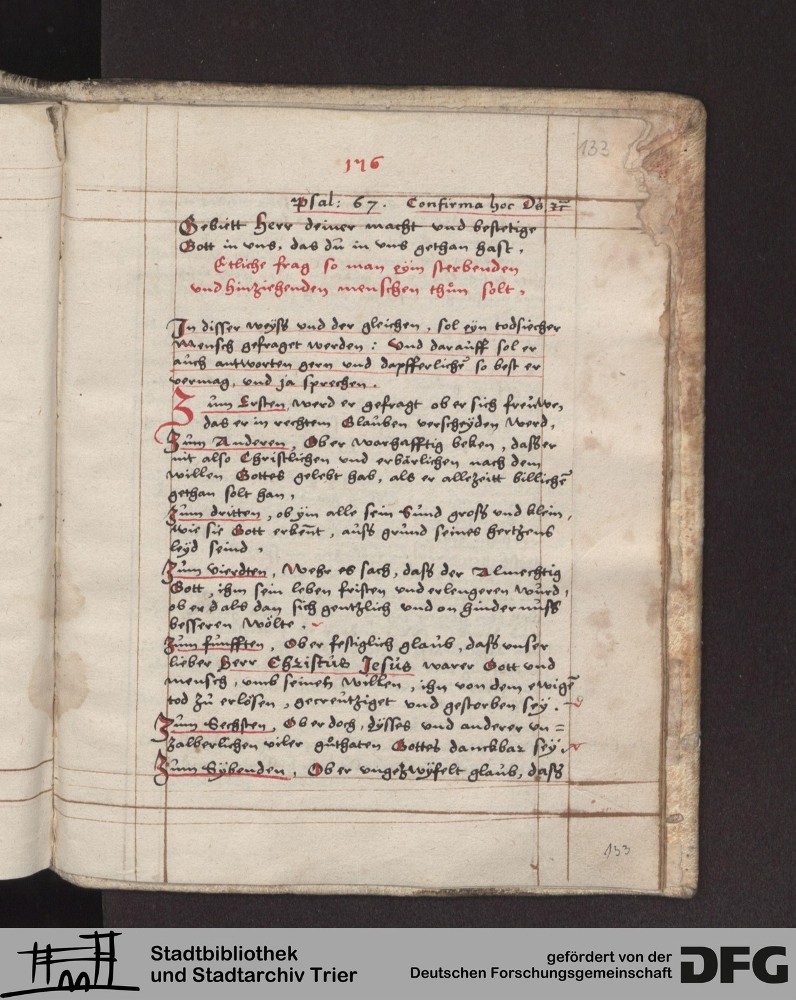 176
133
Psal: 67. Confirma hoc De9 rc
Gebiett Herr deiner macht vnd bestetige
Gott in vns, das dŭ in vns gethan hast,
Etliche frag so man eÿm sterbenden
vnd hinziehenden menschen thŭn solt,
In disser weÿss vnd der gleichen, sol eÿn todsiecher
Mensch gefraget werden: Vnd darauff sol er
aŭch antworten gern vnd dapfferlichē so best er
vermag, vnd ja sprechen.
Zum Ersten, werd er gefragt ob er sich freŭwe,
das er in rechtem Glaŭben verscheÿden werd,
Zŭm Anderen, Ob er warhafftig beken, dass er
nit also Christlichen vnd erbärlichen nach dem
willen Gottes gelebt hab, als er allezeitt billichē
gethan solt han,
Zŭm dritten, ob ÿm alle sein Sŭnd gross vnd klein,
wie sie Gott erkeñt, aŭss grŭnd seines hertzens
leÿd seind,
Zŭm vierdten, Wehr es sach, dass der Almechtig
Gott, ihm sein leben fristen vnd erlengeren wŭrd,
ob er dals dan sich gentzlich vnd on hindernŭss
besseren wölte.
Zŭm fŭnfften, Ob er festiglich glaŭb, dass vnser
lieber Herr Christŭs Jesŭs warer Gott vnd
mensch, vmb seinen willen, ihn von dem ewigē
tod zŭ erlösen, gecreŭtziget vnd gestorben seÿ.
Zŭm Sechsten, Ob er doch, dÿsses vnd anderer vn=
zalberlichen viler gŭthaten Gottes danckbar seÿ.
Zŭm Sÿbenden, Ob er vngezwÿfelt glaŭb, dass
133
Stadtbibliothek
und Stadtarchiv Trier
gefördert von der
Deutschen Forschungsgemeinschaft
DFG